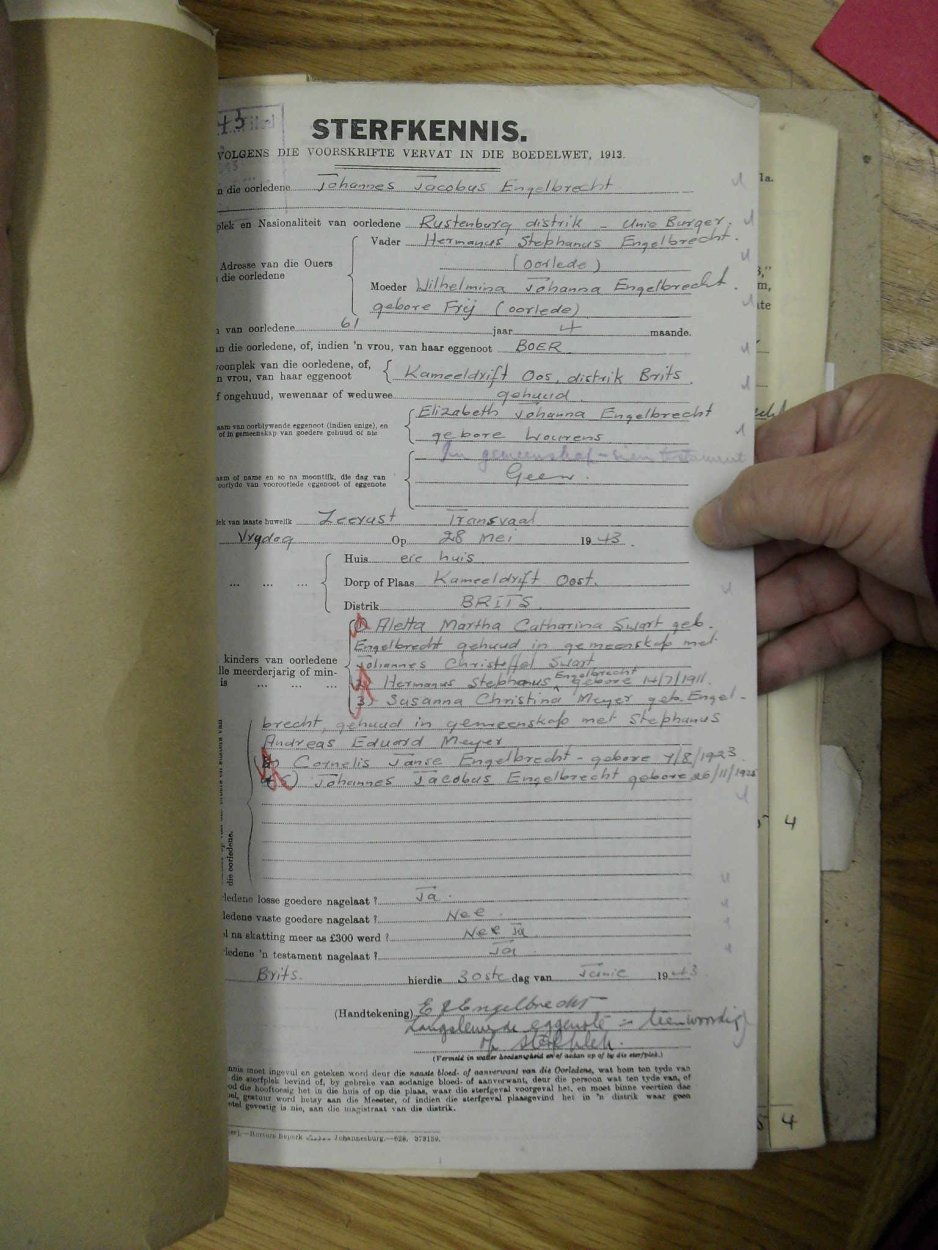 STERFKENNIS.
VOLGENS DIE VOORSKRIFTE VERVAT IN DIE BOEDELWET, 1913.
die oorledene Johannes Jacobus Engelbrecht
plek en Nasionaliteit van oorledene Rustenburg distrik - Unie Burger.
Vader Hermanus Stephanus Engelbrecht.
Adresse van die Ouers
(oorlede)
die oorledene
Moeder Wilhelmina Johanna Engelbrecht.
gebore Frij (oorlede)
van oorledene 61 jaar 4 maande.
an die oorledene, of, indien 'n vrou, van haar eggenoot BOER
woonplek van die oorledene, of,
n vrou, van haar eggenoot Kameeldrift Oos, distrik Brits.
f ongehuud, wewenaar of weduwee gehuud.
aam van oorblywende eggenoot (indien enige), en Elizabeth Johanna Engelbrecht
of in gemeenskap van goedere gehuud of nie gebore Lourens
In gemeenskap - testament
aam of name en so na moontlik, die dag van Geen.
oorlyde van vooroorlede eggenoot of eggenote
lek van laaste huwelik Zeerust Transvaal
Vrydag Op 28 Mei 1943.
Huis eie huis
Dorp of Plaas Kameeldrift Oost.
Distrik BRITS.
Aletta Martha Catharina Swart geb.
Engelbrecht gehuud in gemeenskap met
kinders van oorledene Johannes Christoffel Swart
lle meerderjarig of min- Hermanus Stephanus Engelbrecht gebore 14/7/1911.
is 3) Susanna Christina Meyer geb. Engel-
brecht, gehuud in gemeenskap met Stephanus
Andreas Eduard Meyer
Cornelis Janse Engelbrecht - gebore 7/8/1923.
5) Johannes Jacobus Engelbrecht gebore 26/11/1925
die oorledene.
ledene losse goedere nagelaat? Ja.
ledene vaste goedere nagelaat? Nee.
l na skatting meer as £300 werd? Nee Ja
ledene 'n testament nagelaat? Ja
Brits. hierdie 30ste dag van Junie 1943
(Handtekening) E J Engelbrecht
Langslewende eggenote - teenwoordig
op sterfplek.
(Vermeld in watter hoedanigheid en of aldan op of by die sterfplek.)
nnis moet ingevul en geteken word deur die naaste bloed- of aanverwant van die Oorledene, wat hom ten tyde van
die sterfplek bevind of, by gebreke van sodanige bloed- of aanverwant, deur die persoon wat ten tyde van, of
od die hooftoesig het in die huis of op die plaas, waar die sterfgeval voorgeval het, en moet binne veertien dae
el, gestuur word hetsy aan die Meester, of indien die sterfgeval plaasgevind het in 'n distrik waar geen
tel gevestig is nie, aan die magistraat van die distrik.
Hortors Beperk Johannesburg.—628. 373159.
4
4